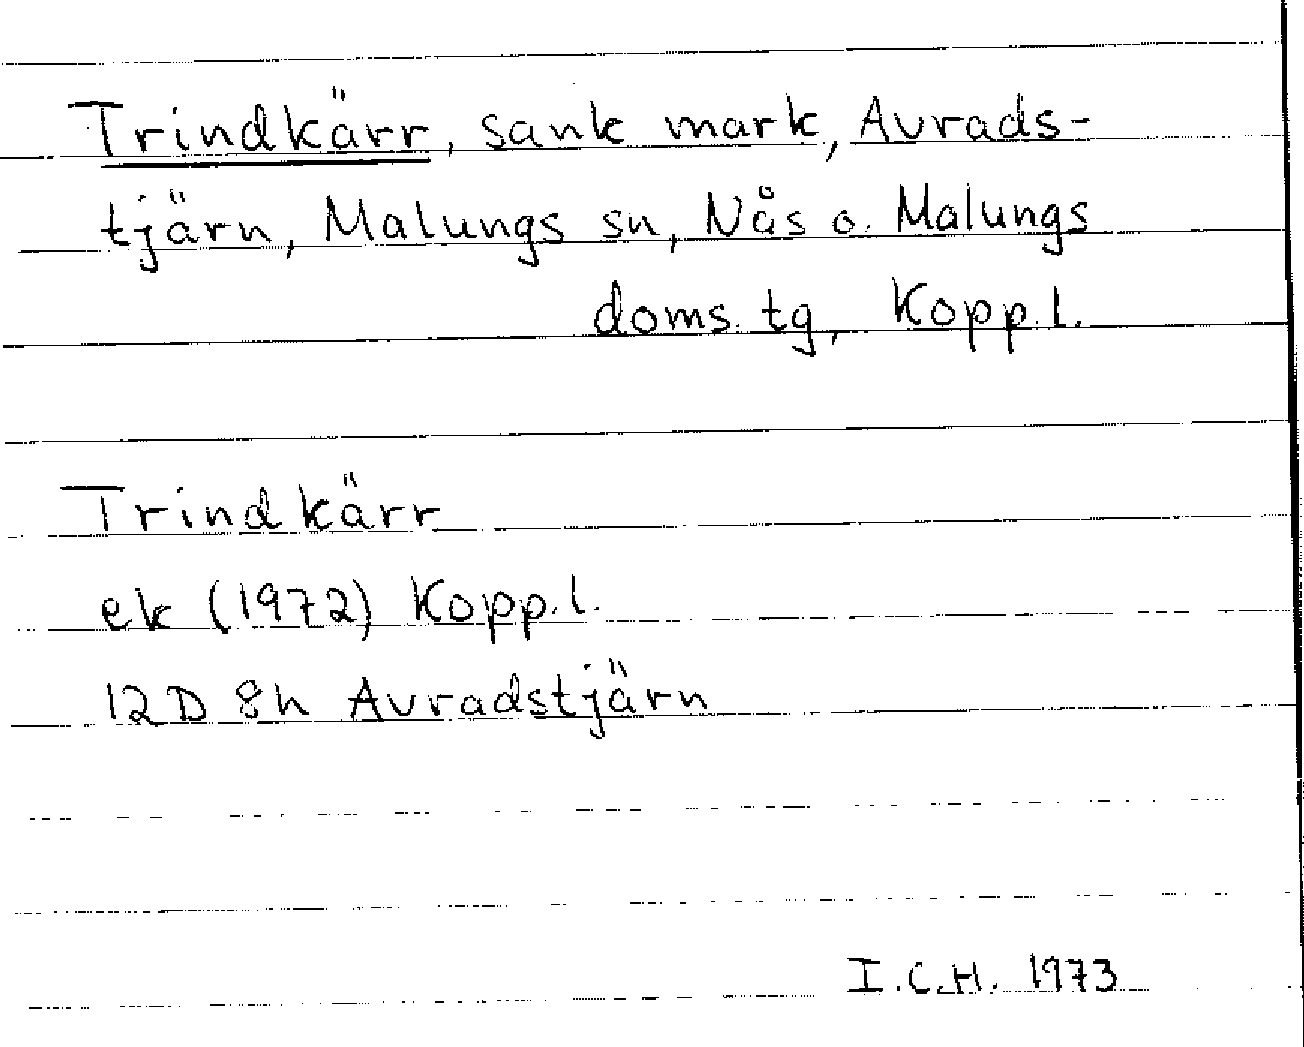 Trindkärr, sank mark, Avrads-
tjärn, Malungs sn, Nås o. Malungs
doms. tg, Kopp. l.
Trindkärr
ek (1972) Kopp. l.
12D 8h Avradstjärn
I.C.H. 1973